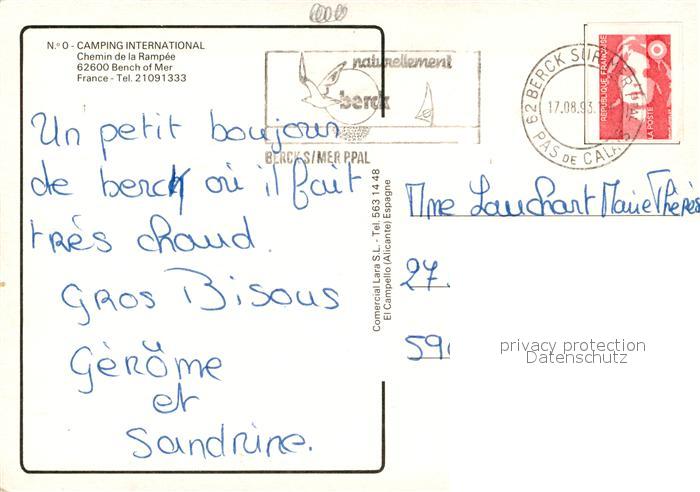 N.º 0 - CAMPING INTERNATIONAL
Chemin de la Rampée
62600 Bench of Mer
France - Tel. 21091333
naturellement
berck
BERCK S/MER PPAL
62 BERCK SUR MER PPAL
17.08.93
PAS DE CALAIS
REPUBLIQUE FRANÇAISE
LA POSTE
Un petit boujour
de berck où il fait
très chaud.
Gros Bisous
Gérôme
et
Sandrine.
Comercial Lara S.L. - Tel. 563 14 48
El Campello (Alicante) Espagne
Mme Lauchart Marie Thérès
27
59
privacy protection
Datenschutz